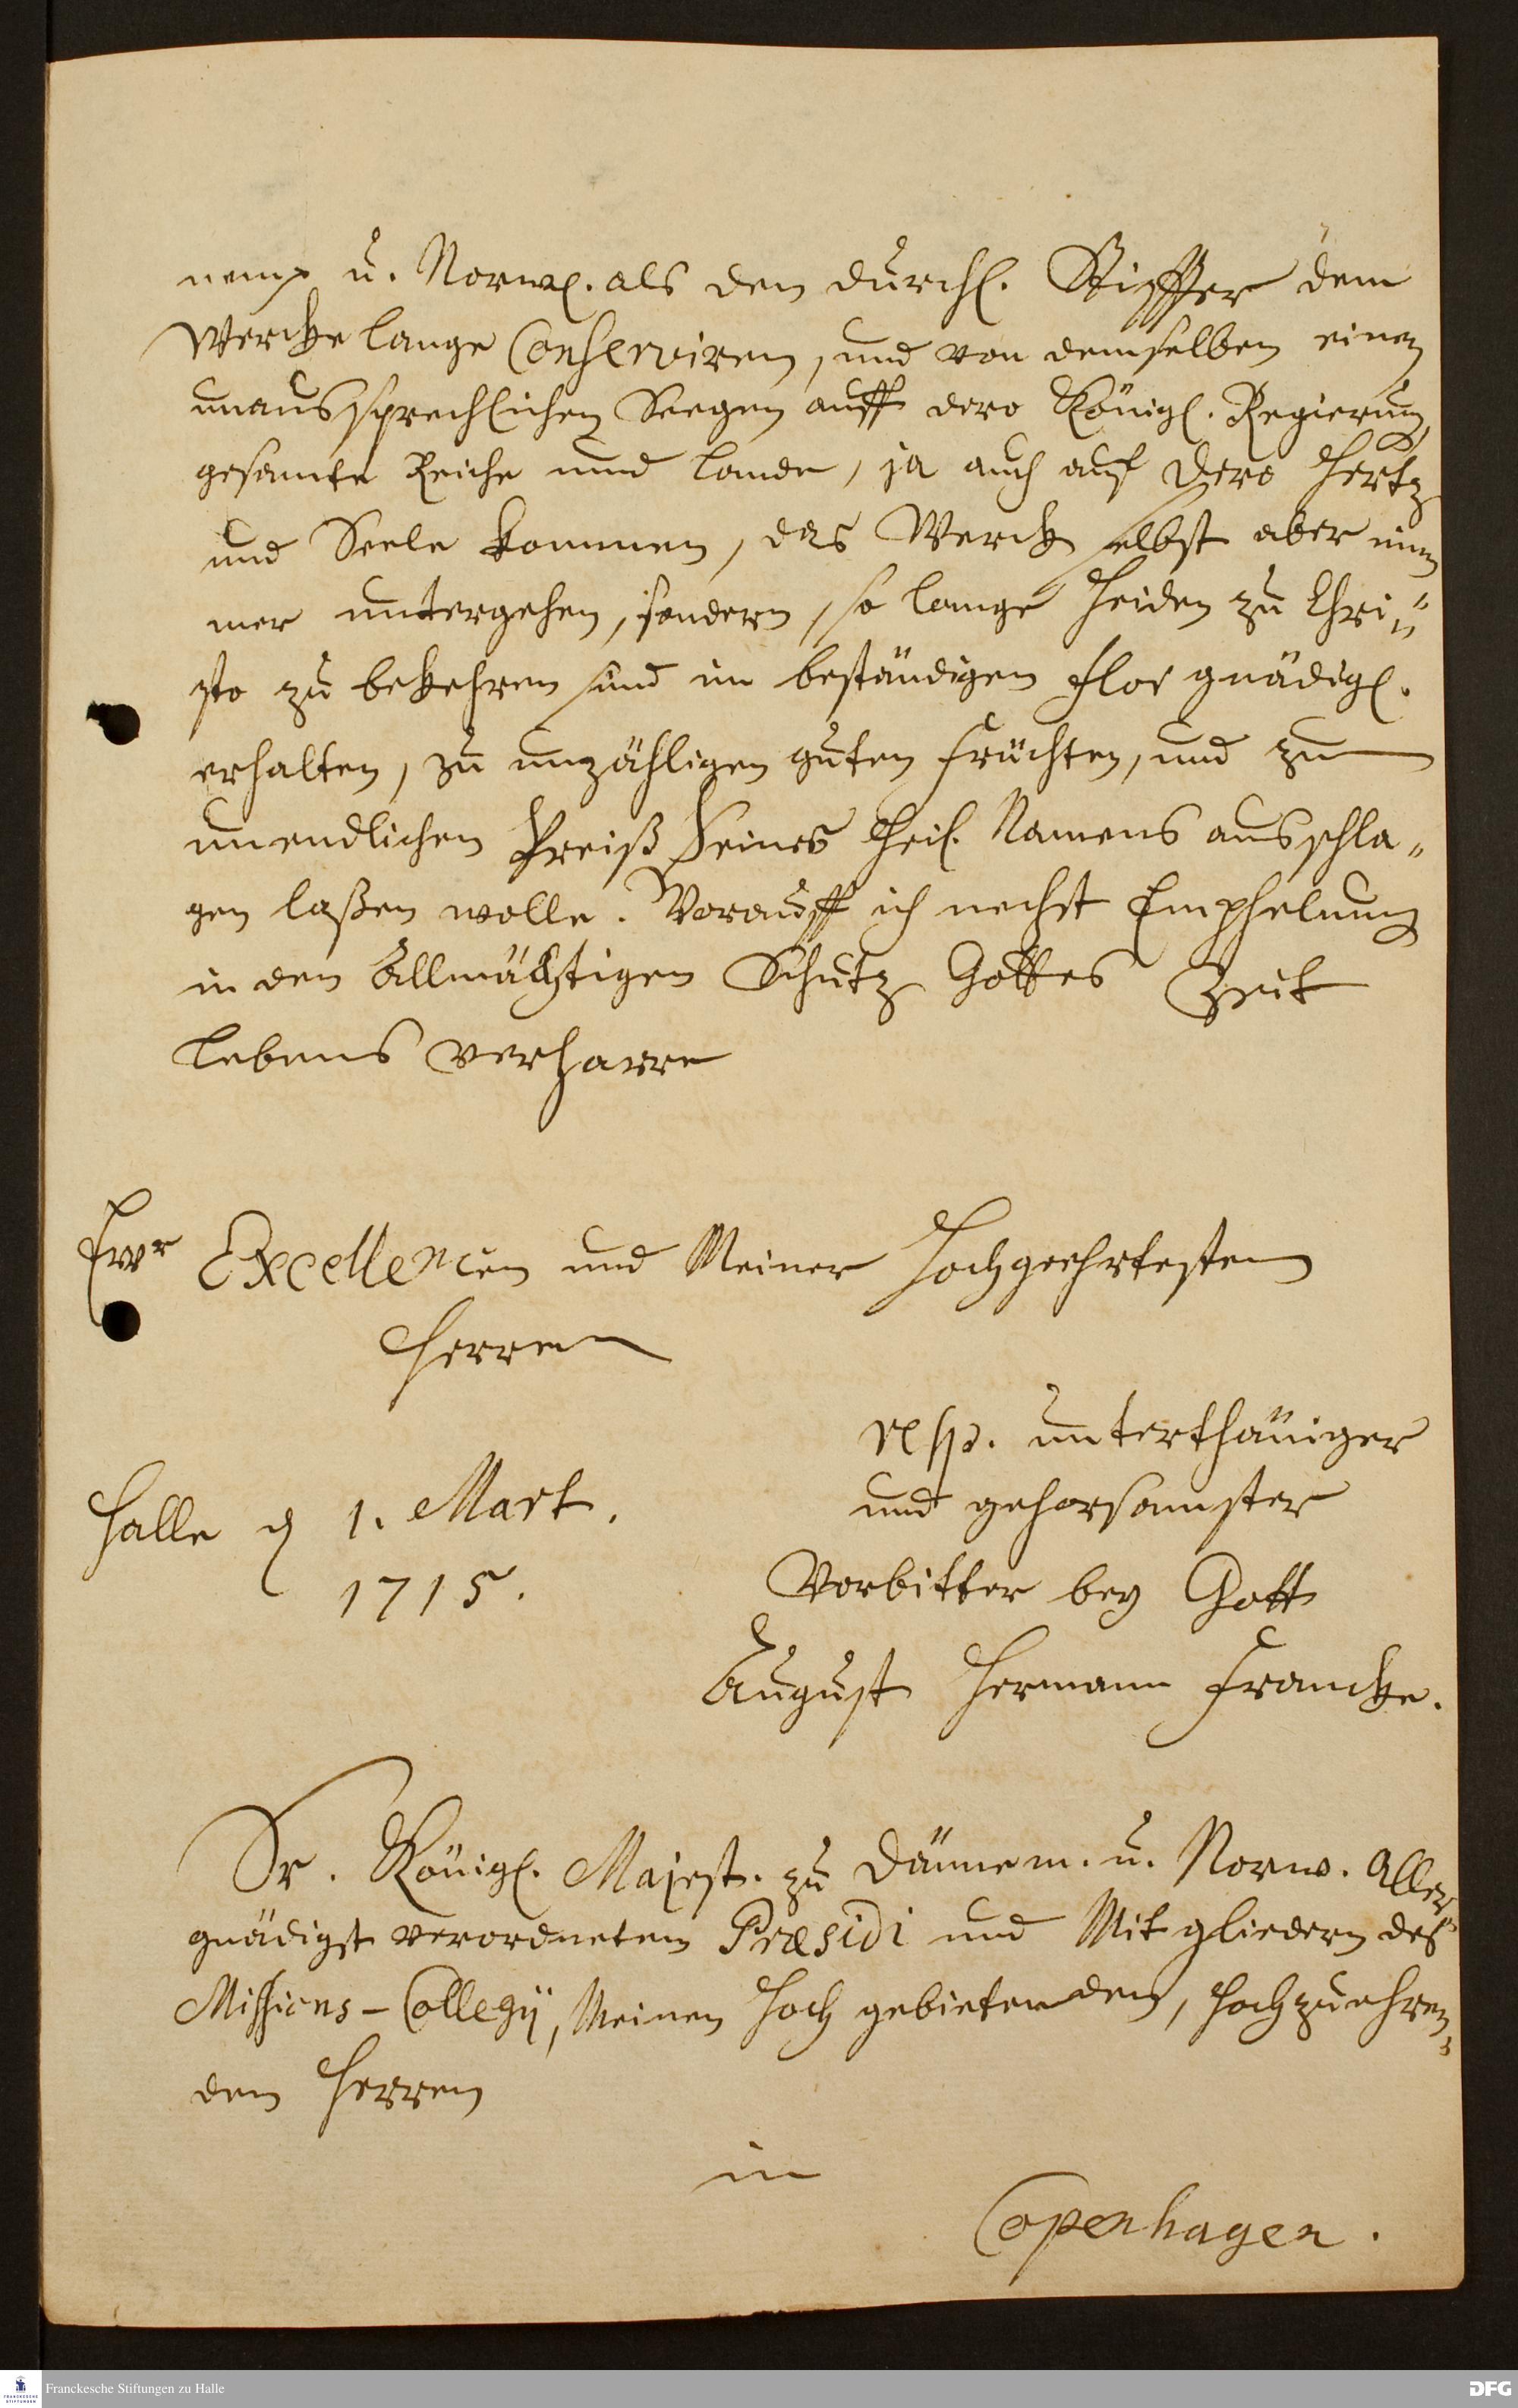 nem. u. Norw. als den durchl. Stiffter dem
Wercke lange Conserviren, und von demselben einen
unaussprechlichen Seegen auff dero Königl. Regierung,
gesamte Reiche und Lande, ja auch auf Dero Hertz
und Seele kommen, das Werck selbst aber nim
mer untergehen, sondern, so lange Heiden zu Chri„
sto zu bekehren sind im beständigen Flor gnädigl.
erhalten, zu unzähligen guten Früchten, und zu
unendlichen Preiß Seines Heil. Namens ausschla„
gen laßen wolle. Worauff ich nechst Empfelung
in den Allmächtigen Schutz Gottes Zeit
Lebens verharre
Ewr Excellencen und Meiner Hochgeehrtesten
Herren
resp. unterthäniger
und gehorsamster
Halle d 1. Mart.
1715.
Vorbitter bey Gott
August Hermann Francke.
Sr. Königl. Majest. zu Dännem. u. Norw. Aller
gnädigst verordnetem Præsidi und Mitgliedern des
Missions-Collegij, Meinen Hoch gebietenden, Hochzuehren„
den Herren
in
Copenhagen.
Franckesche Stiftungen zu Halle
DFG